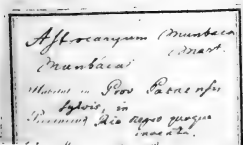 Astrocaryum Munbaca
Mart.
Munbáca
Habitat in Prov Paraensis
sylvis, in
Rio Negro quoque